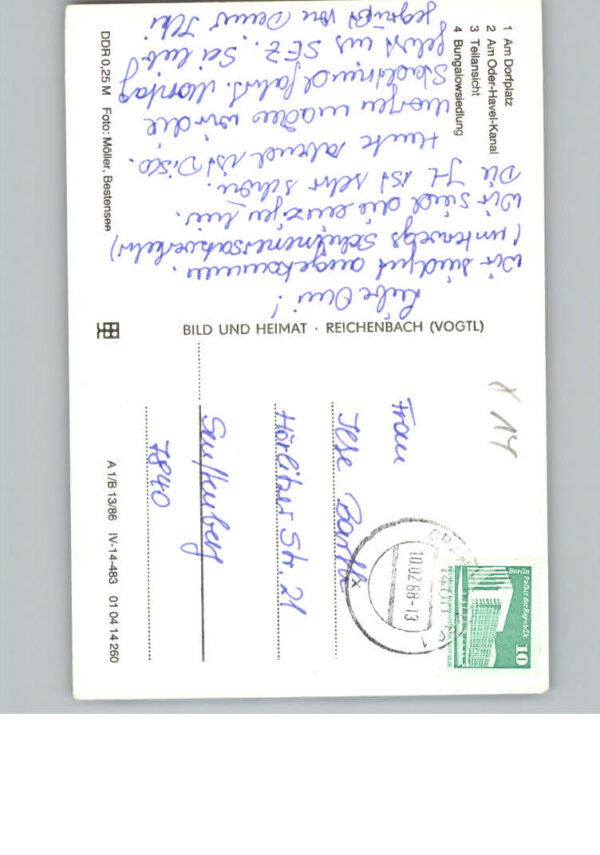 1 Am Dorfplatz
2 Am Oder-Havel-Kanal
3 Teilansicht
4 Bungalowsiedlung
Liebe Omi!
Wir sind gut angekommen.
(unterwegs Schienenersatzverkehr)
Wir sind die einzigen hier.
Die JH ist sehr schön.
Heute abend ist Disco.
Morgen machen wir die
Stadtrundfahrt. Montag
gehts ins SEZ. Sei lieb
gegrüßt von Deiner
DDR 0,25 M Foto: Möller, Bestensee
BILD UND HEIMAT · REICHENBACH (VOGTL)
X 14
10
Berlin
Palast der Republik
10.02.88-13
1
Frau
Ilse Barthk
Hörlitzer Str. 21
Senftenberg
7840
A 1/B 13/86 IV-14-483 01 04 14 260